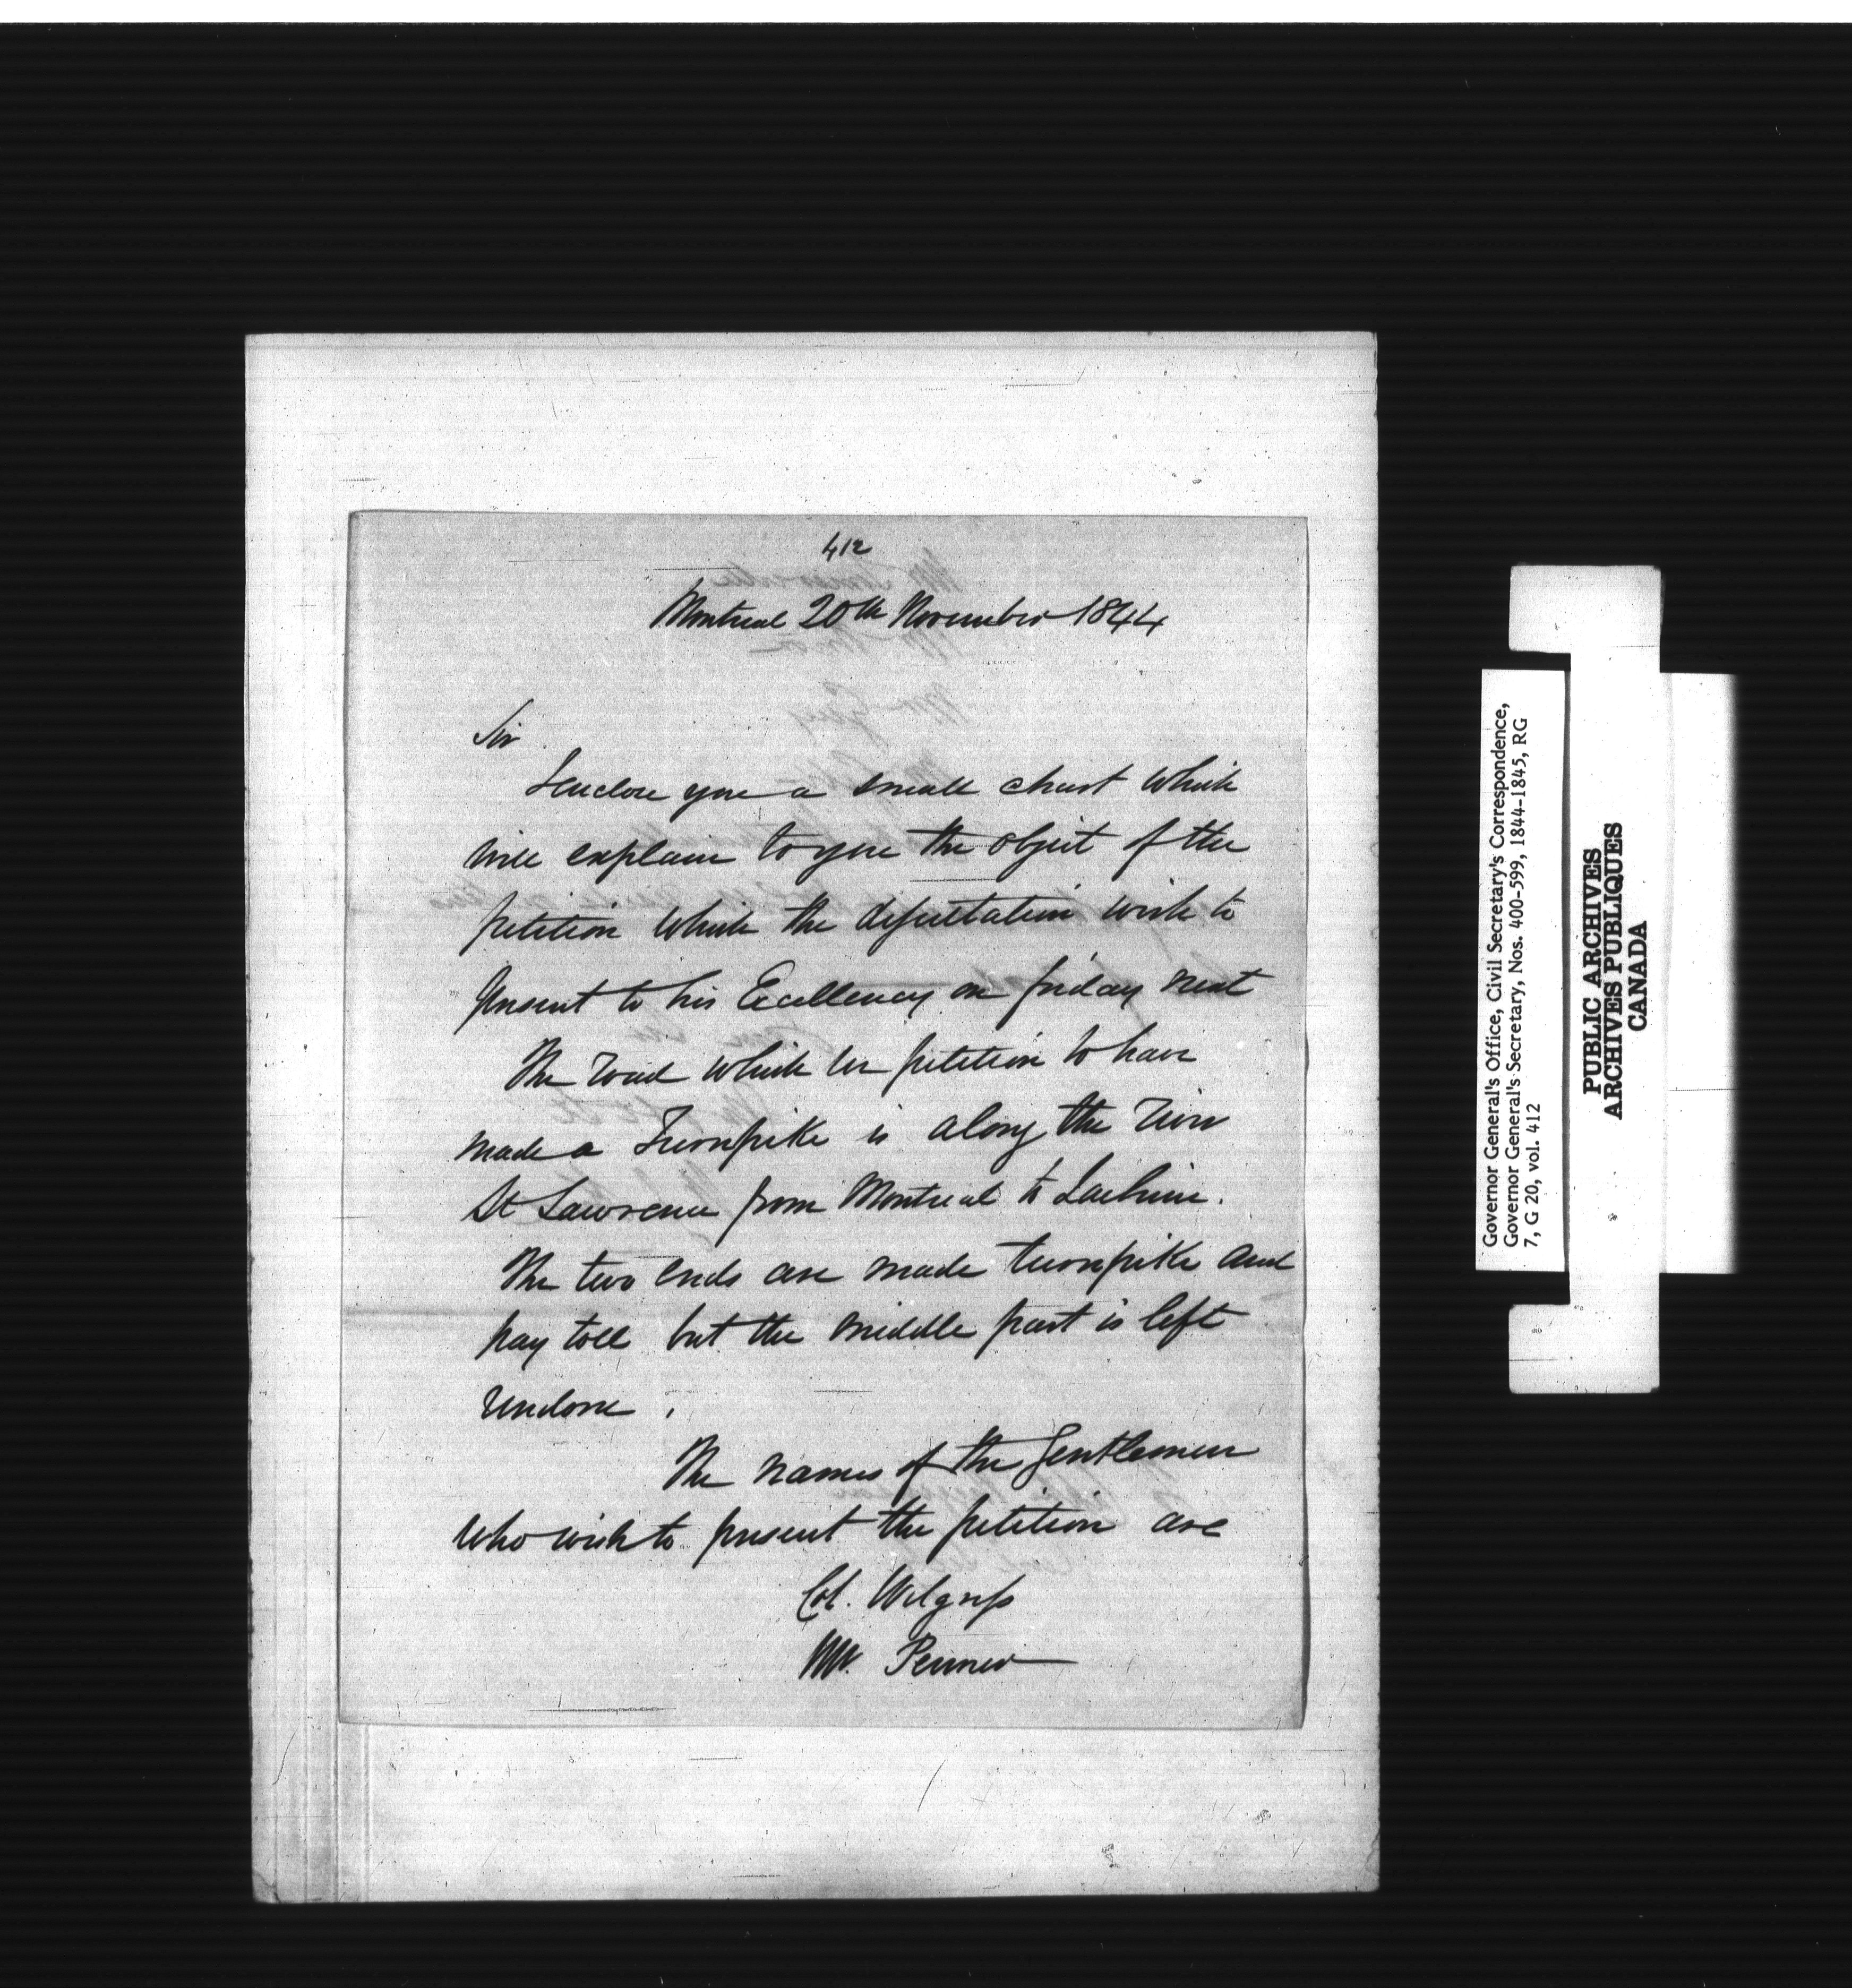 412
Montreal 20th November 1844
Sir
I enclose you a small chart which
will explain to you the object of the
petition which the deputation wish to
present to his Excellency on friday next
The road which we petition to have
made a Turnpike is along the river
St Lawrence from Montreal to Lachine.
The two ends are made turnpike and
pay toll but the middle part is left
undone.
The names of the Gentlemen
who wish to present the petition are
Col. Wilgress
Mr. Penner
Governor General's Office, Civil Secretary's Correspondence,
Governor General's Secretary, Nos. 400-599, 1844-1845, RG
7, G 20, vol. 412
PUBLIC ARCHIVES
ARCHIVES PUBLIQUES
CANADA